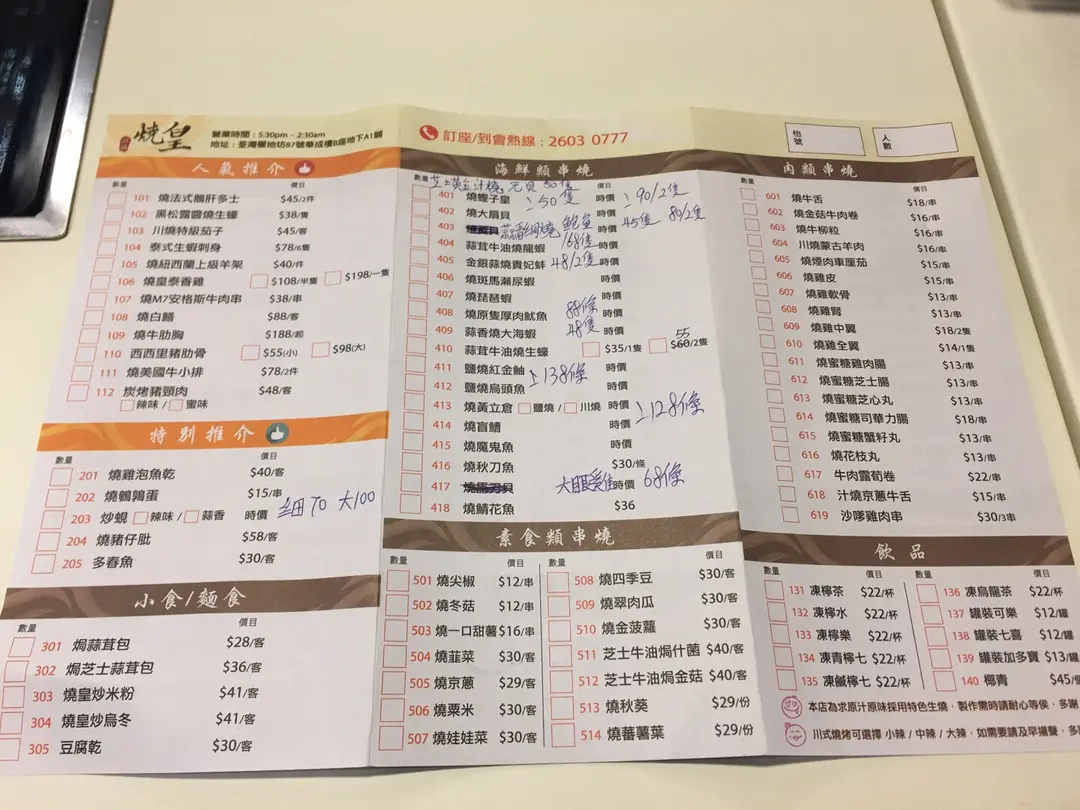 燒皇
營業時間：5:30pm - 2:30am
地址：荃灣蠔地坊87號華成樓B座地下A1舖
訂座/到會熱線：2603 0777
枱號
人數
人氣推介
數量 價目
101 燒法式鵝肝多士 $45/2件
102 黑松露醬燒生蠔 $38/隻
103 川燒特級茄子 $45/客
104 泰式生蝦刺身 $78/6隻
105 燒紐西蘭上級羊架 $40/件
106 燒皇泰香雞 $108/半隻 $198/一隻
107 燒M7安格斯牛肉串 $38/串
108 燒白鱔 $88/客
109 燒牛肋胸 $188/起
110 西西里豬肋骨 $55(小) $98(大)
111 燒美國牛小排 $78/2件
112 炭烤豬頸肉 $48/客
辣味 / 蜜味
特別推介
數量 價目
201 燒雞泡魚乾 $40/客
202 燒鵪鶉蛋 $15/串
203 炒蜆 辣味 / 蒜香 時價 細70 大100
204 燒豬仔肚 $58/客
205 多春魚 $30/客
小食/麵食
數量 價目
301 焗蒜茸包 $28/客
302 焗芝士蒜茸包 $36/客
303 燒皇炒米粉 $41/客
304 燒皇炒烏冬 $41/客
305 豆腐乾 $30/客
海鮮類串燒
數量 價目
芝士黃金汁燒 元貝 50隻
401 燒蟶子皇 50隻 時價 90/2隻
402 燒大扇貝 時價 45隻 80/2隻
403 蒜香 燒 鮑魚
404 蒜茸牛油燒龍蝦 168隻 時價
405 金銀蒜燒貴妃蚌 48/2隻 時價
406 燒斑馬瀨尿蝦 時價
407 燒琵琶蝦 時價
408 燒原隻厚肉魷魚 88條 時價
409 蒜香燒大海蝦 48隻 時價
410 蒜茸牛油燒生蠔 $35/1隻 $60/2隻 55
411 鹽燒紅金鮋 138條 時價
412 鹽燒烏頭魚 時價
413 燒黃立倉 鹽燒 / 川燒 時價 128條
414 燒盲鰽 時價
415 燒魔鬼魚 時價
416 燒秋刀魚 $30/條
417 燒馬刀貝 大眼雞 時價 68條
418 燒鯖花魚 $36
素食類串燒
數量 價目
501 燒尖椒 $12/串
502 燒冬菇 $12/串
503 燒一口甜薯 $16/串
504 燒韮菜 $30/客
505 燒京蔥 $29/客
506 燒粟米 $30/客
507 燒娃娃菜 $30/客
數量 價目
508 燒四季豆 $30/客
509 燒翠肉瓜 $30/客
510 燒金菠蘿 $30/客
511 芝士牛油焗什菌 $40/客
512 芝士牛油焗金菇 $40/客
513 燒秋葵 $29/份
514 燒蕃薯葉 $29/份
肉類串燒
數量 價目
601 燒牛舌 $18/串
602 燒金菇牛肉卷 $16/串
603 燒牛柳粒 $16/串
604 川燒蒙古羊肉 $16/串
605 燒煙肉車厘茄 $15/串
606 燒雞皮 $15/串
607 燒雞軟骨 $13/串
608 燒雞腎 $13/串
609 燒雞中翼 $18/2隻
610 燒雞全翼 $14/1隻
611 燒蜜糖雞肉腸 $13/串
612 燒蜜糖芝士腸 $13/串
613 燒蜜糖芝心丸 $13/串
614 燒蜜糖司華力腸 $18/串
615 燒蜜糖蟹籽丸 $13/串
616 燒花枝丸 $13/串
617 牛肉露荀卷 $22/串
618 汁燒京蔥牛舌 $15/串
619 沙嗲雞肉串 $30/3串
飲品
數量 價目
131 凍檸茶 $22/杯
132 凍檸水 $22/杯
133 凍檸樂 $22/杯
134 凍青檸七 $22/杯
135 凍鹹檸七 $22/杯
數量 價目
136 凍烏龍茶 $22/杯
137 罐裝可樂 $12/罐
138 罐裝七喜 $12/罐
139 罐裝加多寶 $13/罐
140 椰青 $45/個
本店為求原汁原味採用特色生燒，製作需時請耐心等侯，多謝
川式燒烤可選擇 小辣 / 中辣 / 大辣，如需要請及早揚聲，多